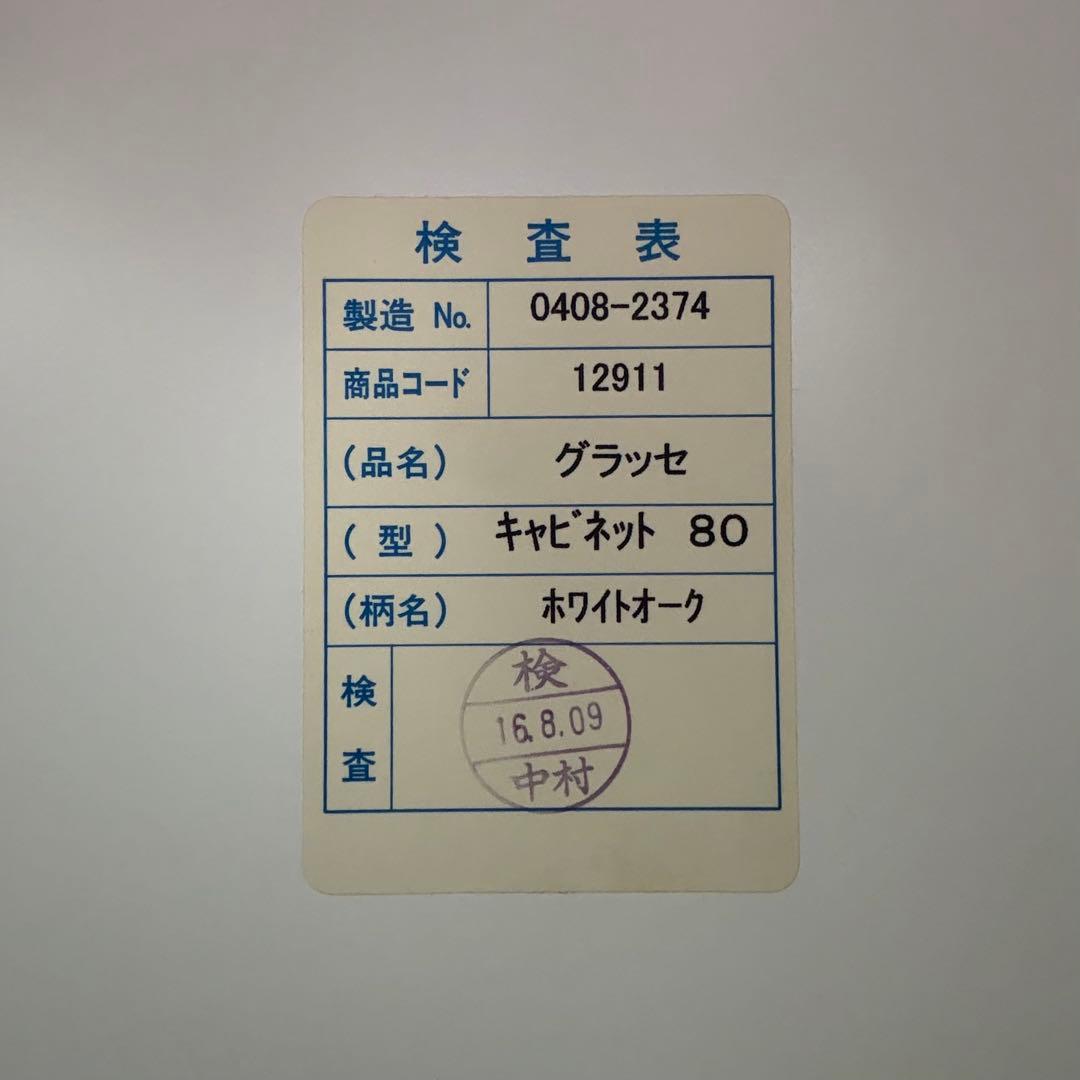 検査表
製造 No. 0408-2374
商品コード 12911
(品名) グラッセ
(型) キャビネット 80
(柄名) ホワイトオーク
検査
検
16.8.09
中村